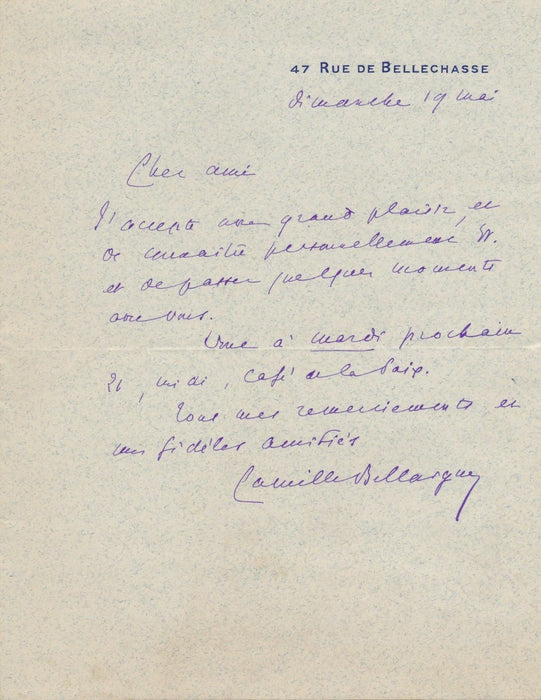 47 RUE DE BELLECHASSE
dimanche 19 mai
Cher ami
J'accepte avec grand plaisir, et
de connaître personnellement St.
et de passer quelques moments
avec vous.
Donc à mardi prochain
21, midi, Café de la Paix.
Tous mes remerciements et
mes fidèles amitiés
Camille Bellaigue